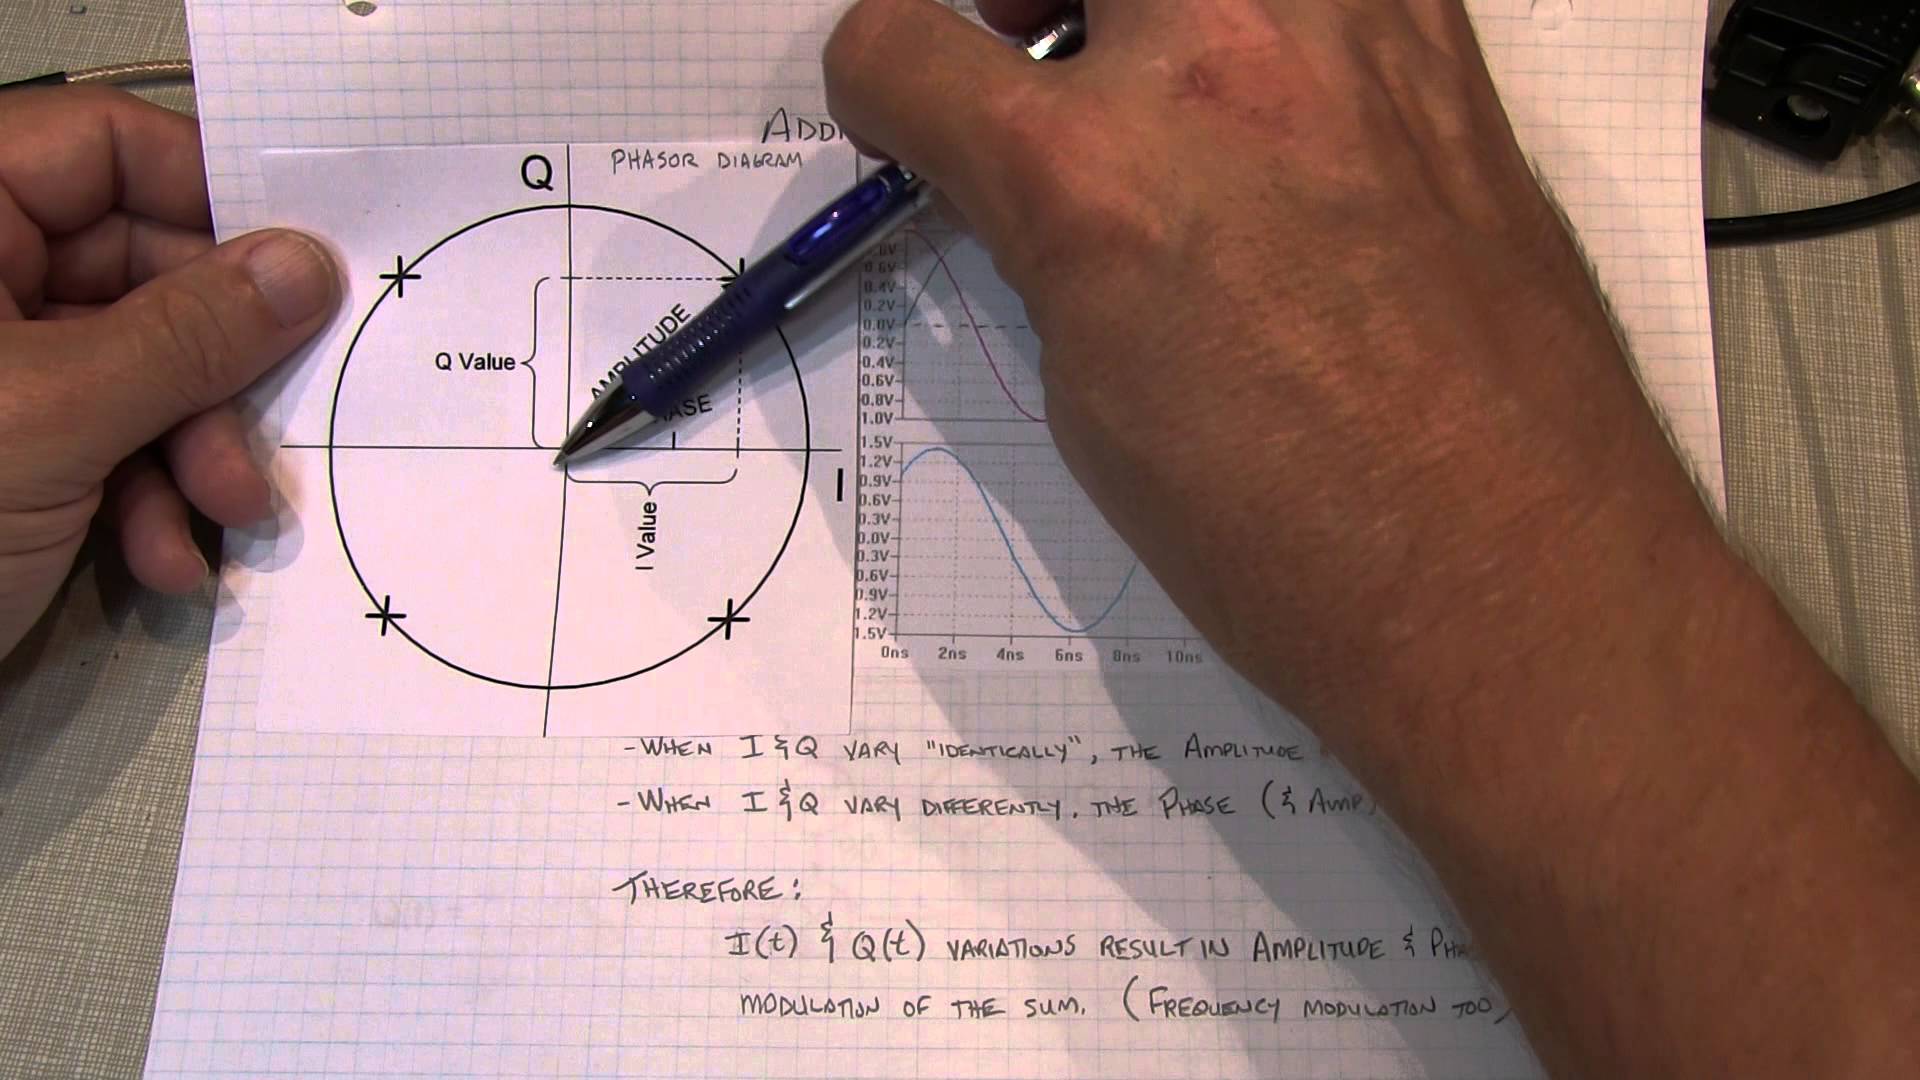 ADDI
Q
PHASOR DIAGRAM
AMPLITUDE
Q Value
I
I Value
0.6V
0.4V
0.2V
0.0V
0.2V
0.4V
0.6V
0.8V
1.0V
1.5V
1.2V
0.9V
0.6V
0.3V
0.0V
0.3V
0.6V
0.9V
1.2V
1.5V
0ns 2ns 4ns 6ns 8ns 10ns
- WHEN I & Q VARY "IDENTICALLY", THE AMPLITUDE
- WHEN I & Q VARY DIFFERENTLY, THE PHASE (& AMP
THEREFORE:
I(t) & Q(t) VARIATIONS RESULT IN AMPLITUDE & PHA
MODULATION OF THE SUM. (FREQUENCY MODULATION TOO)